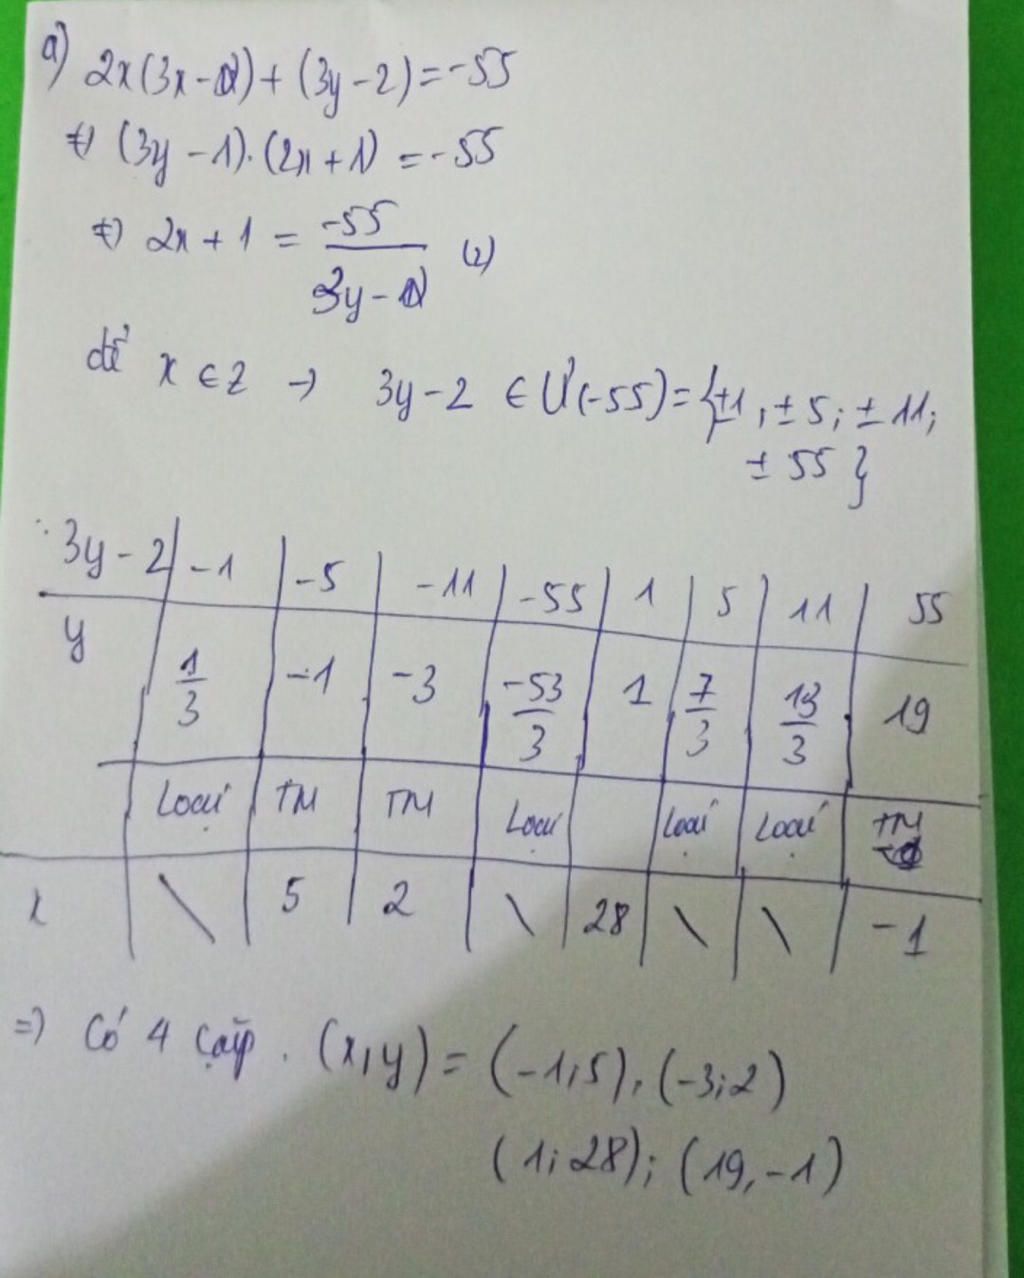 a) 2x(3x-2)+(3y-2)=-55
⇔ (3y-1).(2x+1) =-55
⇔ 2x+1 = -55/(3y-2) (2)
để x ∈ Z → 3y-2 ∈ Ư(-55)={±1, ±5; ±11;
±55}
3y-2 | -1 | -5 | -11 | -55 | 1 | 5 | 11 | 55
y | 1/3 | -1 | -3 | -53/3 | 1 | 7/3 | 13/3 | 19
Loại | TM | TM | Loại | | Loại | Loại | TM
x | \ | 5 | 2 | \ | 28 | \ | \ | -1
=> Có 4 cặp. (x,y) = (-1;5), (-3;2)
(1;28); (19,-1)